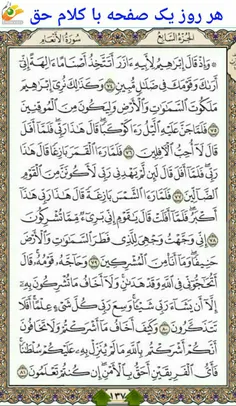 هر روز یک صفحه با کلام حق
الجزء السابع
سورة الأنعام
۞ وَإِذْ قَالَ إِبْرَٰهِيمُ لِأَبِيهِ ءَازَرَ أَتَتَّخِذُ أَصْنَامًا ءَالِهَةً إِنِّىٓ
أَرَىٰكَ وَقَوْمَكَ فِى ضَلَٰلٍ مُّبِينٍ ٧٤ وَكَذَٰلِكَ نُرِىٓ إِبْرَٰهِيمَ
مَلَكُوتَ ٱلسَّمَٰوَٰتِ وَٱلْأَرْضِ وَلِيَكُونَ مِنَ ٱلْمُوقِنِينَ
٧٥ فَلَمَّا جَنَّ عَلَيْهِ ٱلَّيْلُ رَءَا كَوْكَبًا قَالَ هَٰذَا رَبِّى فَلَمَّآ أَفَلَ
قَالَ لَآ أُحِبُّ ٱلْءَافِلِينَ ٧٦ فَلَمَّا رَءَا ٱلْقَمَرَ بَازِغًا قَالَ هَٰذَا
رَبِّى فَلَمَّآ أَفَلَ قَالَ لَئِن لَّمْ يَهْدِنِى رَبِّى لَأَكُونَنَّ مِنَ ٱلْقَوْمِ
ٱلضَّآلِّينَ ٧٧ فَلَمَّا رَءَا ٱلشَّمْسَ بَازِغَةً قَالَ هَٰذَا رَبِّى هَٰذَآ
أَكْبَرُ فَلَمَّآ أَفَلَتْ قَالَ يَٰقَوْمِ إِنِّى بَرِىٓءٌ مِّمَّا تُشْرِكُونَ
٧٨ إِنِّى وَجَّهْتُ وَجْهِىَ لِلَّذِى فَطَرَ ٱلسَّمَٰوَٰتِ وَٱلْأَرْضَ
حَنِيفًا وَمَآ أَنَا۠ مِنَ ٱلْمُشْرِكِينَ ٧٩ وَحَآجَّهُۥ قَوْمُهُۥ قَالَ
أَتُحَٰٓجُّوٓنِّى فِى ٱللَّهِ وَقَدْ هَدَىٰنِ وَلَآ أَخَافُ مَا تُشْرِكُونَ بِهِۦٓ
إِلَّآ أَن يَشَآءَ رَبِّى شَيْـًٔا وَسِعَ رَبِّى كُلَّ شَىْءٍ عِلْمًا أَفَلَا
تَتَذَكَّرُونَ ٨٠ وَكَيْفَ أَخَافُ مَآ أَشْرَكْتُمْ وَلَا تَخَافُونَ
أَنَّكُمْ أَشْرَكْتُم بِٱللَّهِ مَا لَمْ يُنَزِّلْ بِهِۦ عَلَيْكُمْ سُلْطَٰنًا
فَأَىُّ ٱلْفَرِيقَيْنِ أَحَقُّ بِٱلْأَمْنِ إِن كُنتُمْ تَعْلَمُونَ ٨١
١٣٧